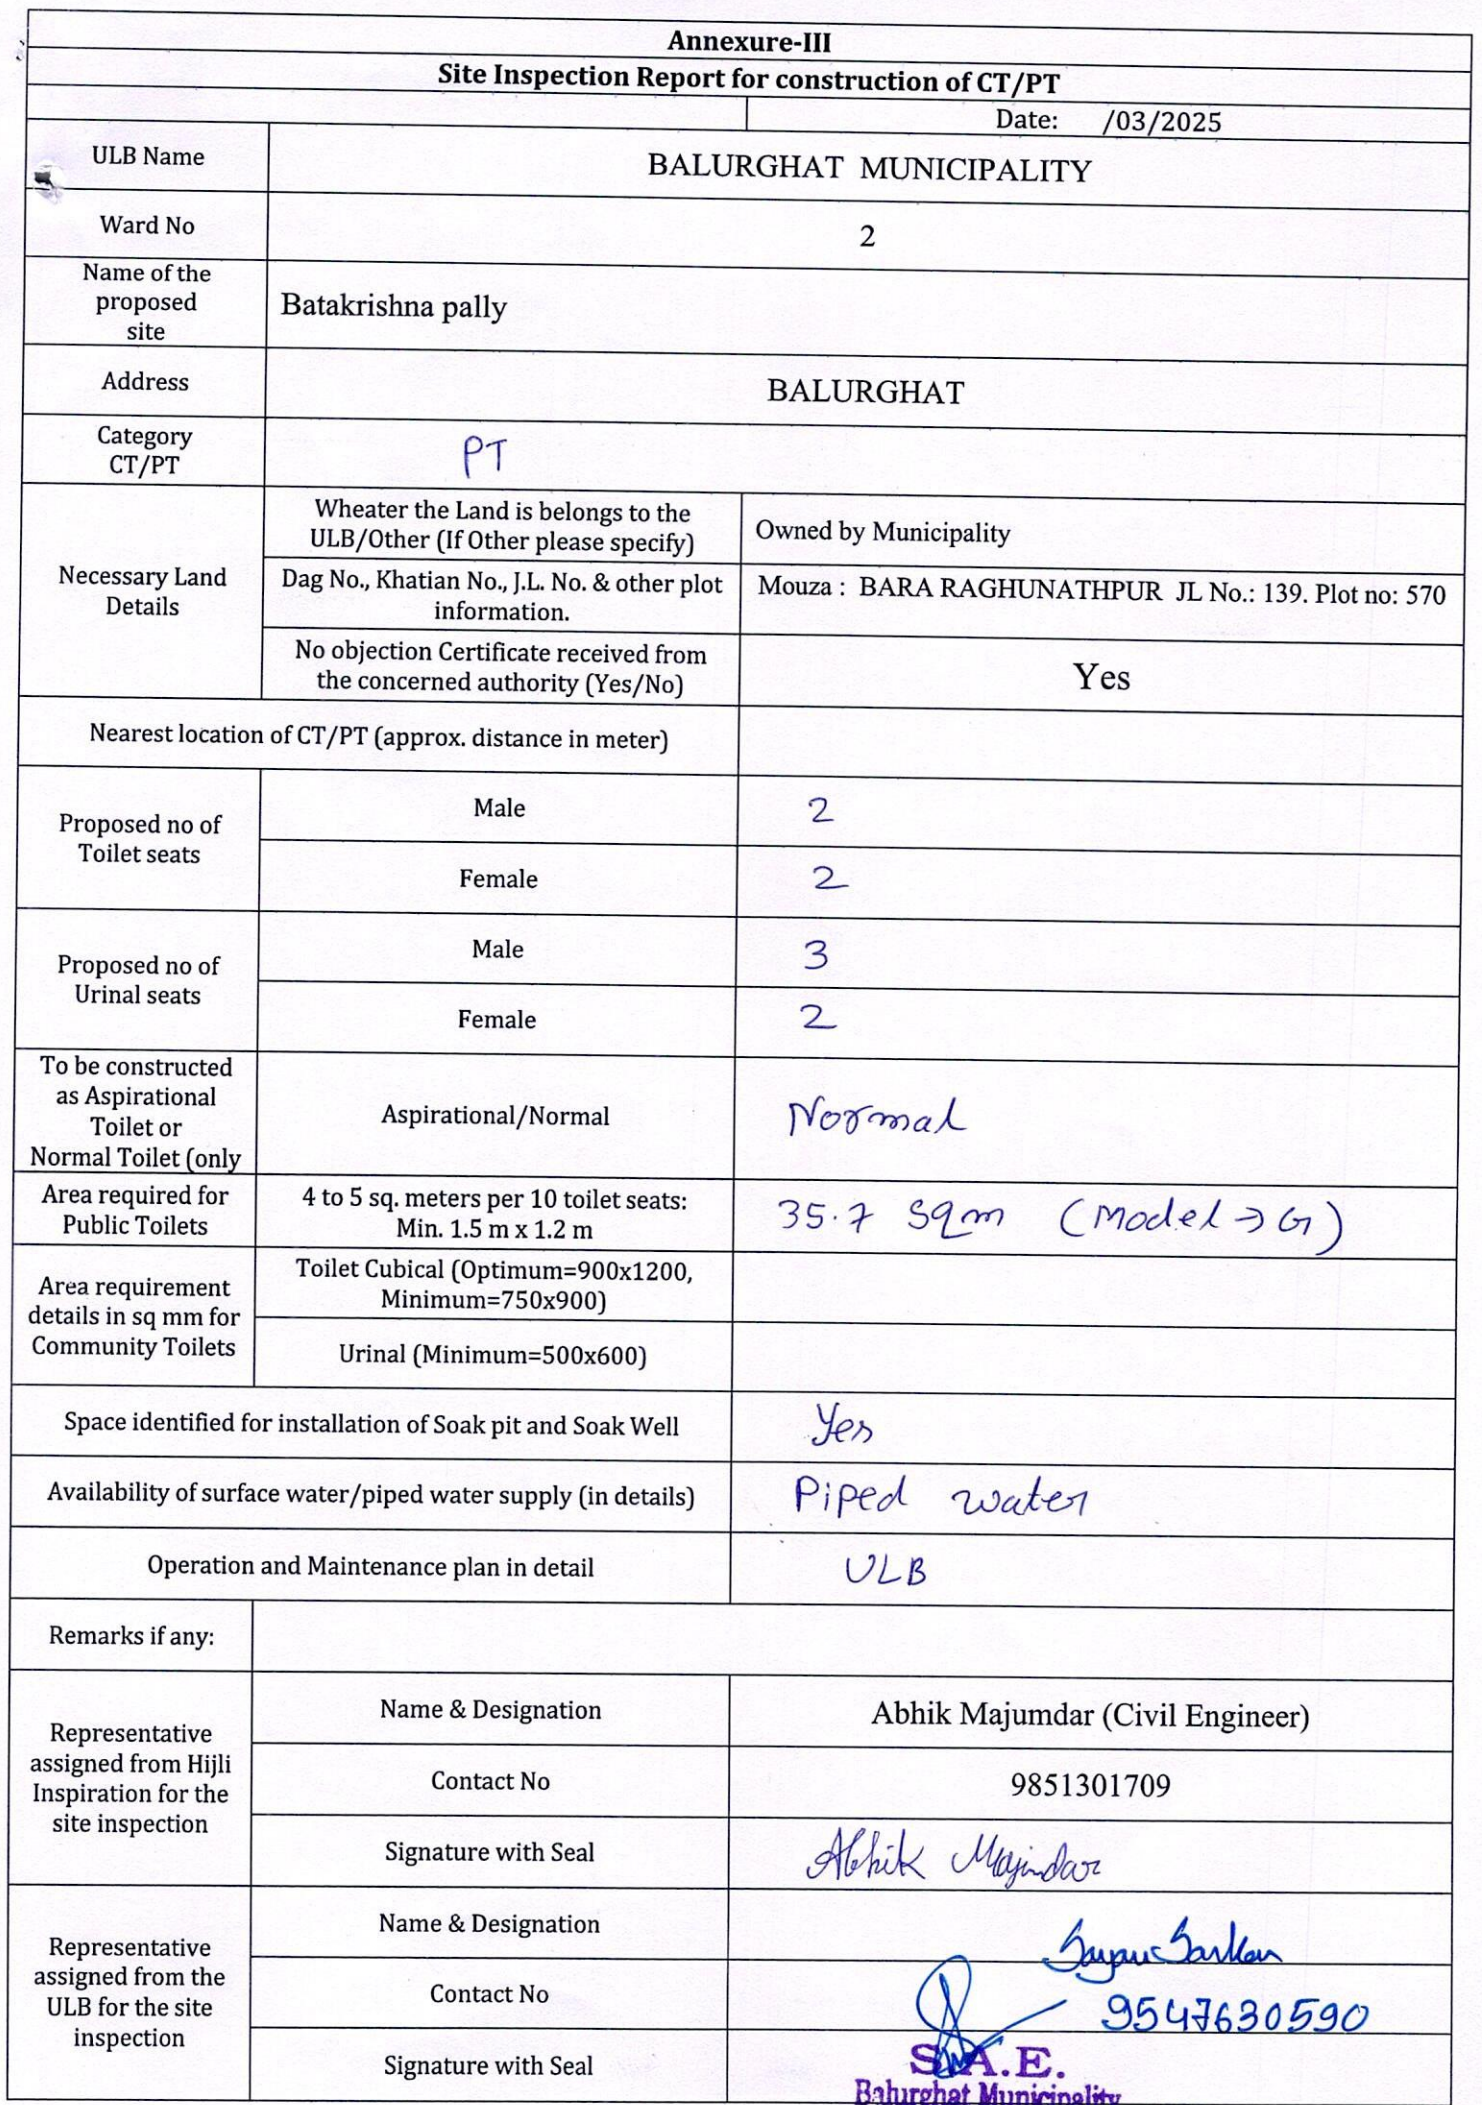 Annexure-III
Site Inspection Report for construction of CT/PT
Date: /03/2025
ULB Name
BALURGHAT MUNICIPALITY
Ward No
2
Name of the
proposed
site
Batakrishna pally
Address
BALURGHAT
Category
CT/PT
PT
Necessary Land
Details
Wheater the Land is belongs to the
ULB/Other (If Other please specify)
Owned by Municipality
Dag No., Khatian No., J.L. No. & other plot
information.
Mouza : BARA RAGHUNATHPUR JL No.: 139. Plot no: 570
No objection Certificate received from
the concerned authority (Yes/No)
Yes
Nearest location of CT/PT (approx. distance in meter)
Proposed no of
Toilet seats
Male
2
Female
2
Proposed no of
Urinal seats
Male
3
Female
2
To be constructed
as Aspirational
Toilet or
Normal Toilet (only
Aspirational/Normal
Normal
Area required for
Public Toilets
4 to 5 sq. meters per 10 toilet seats:
Min. 1.5 m x 1.2 m
35.7 Sqm (Model → G)
Area requirement
details in sq mm for
Community Toilets
Toilet Cubical (Optimum=900x1200,
Minimum=750x900)
Urinal (Minimum=500x600)
Space identified for installation of Soak pit and Soak Well
Yes
Availability of surface water/piped water supply (in details)
Piped water
Operation and Maintenance plan in detail
ULB
Remarks if any:
Representative
assigned from Hijli
Inspiration for the
site inspection
Name & Designation
Abhik Majumdar (Civil Engineer)
Contact No
9851301709
Signature with Seal
Abhik Majumdar
Representative
assigned from the
ULB for the site
inspection
Name & Designation
Sarkar
Contact No
9547630590
Signature with Seal
S.A.E.
Balurghat Municipality